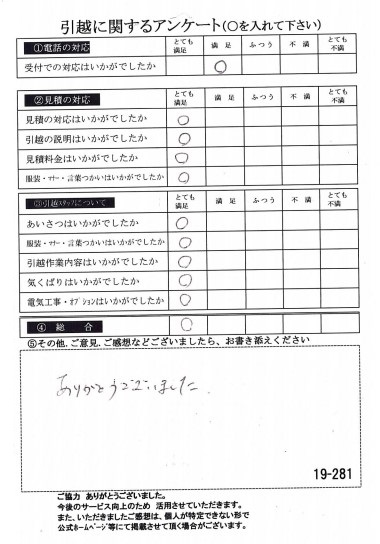 引越に関するアンケート(○を入れて下さい)
①電話の対応 とても満足 満足 ふつう 不満 とても不満
受付での対応はいかがでしたか ○
②見積の対応 とても満足 満足 ふつう 不満 とても不満
見積の対応はいかがでしたか ○
引越の説明はいかがでしたか ○
見積料金はいかがでしたか ○
服装・マナー・言葉つかいはいかがでしたか ○
③引越スタッフについて とても満足 満足 ふつう 不満 とても不満
あいさつはいかがでしたか ○
服装・マナー・言葉つかいはいかがでしたか ○
引越作業内容はいかがでしたか ○
気くばりはいかがでしたか ○
電気工事・オプションはいかがでしたか ○
④ 総 合 ○
⑤その他、ご意見、ご感想などございましたら、お書き添えください
ありがとうございました
19-281
ご協力 ありがとうございました。
今後のサービス向上のため 活用させていただきます。
また、いただきましたご感想は、個人が特定できない形で
公式ホームページ等にて掲載させて頂く場合がございます。